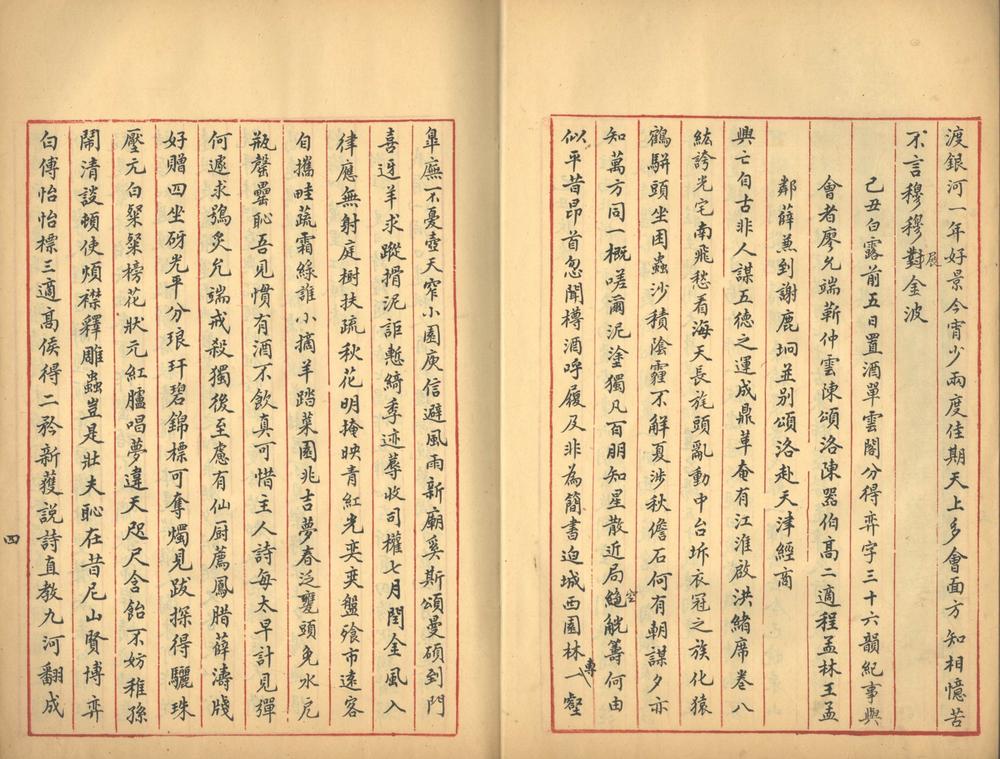 渡銀河一年好景今宵少兩度佳期天上多會面方知相憶苦
不言穆穆對金波
展
己丑白露前五日置酒單雲閣分得弈字三十六韻紀事與
會者廖允端靳仲雲陳頌洛陳器伯高二適程孟林王孟
鄰薛蕙到謝鹿坰並別頌洛赴天津經商
興亡自古非人謀五德之運成鼎革奄有江淮啟洪緒席卷八
紘誇光宅南飛愁看海天長旄頭亂動中台坼衣冠之族化猿
鶴駢頭坐困蟲沙積陰霾不解夏涉秋儋石何有朝謀夕亦
知萬方同一概嗟爾泥塗獨凡百朋知星散近局觥籌何由
空
似平昔昂首忽聞樽酒呼履及非為簡書迫城西園林一壑
專
皐廡不憂壺天窄小園庾信避風雨新廟奚斯頌曼碩到門
喜迓羊求蹤搰泥詎慙綺季迹蓐收司權七月閏金風入
律應無射庭樹扶疏秋花明掩映青紅光奕奕盤飧市遠客
自攜畦蔬霜綠誰小摘羊踏菜園兆吉夢春泛甕頭免水厄
瓶罄罍恥吾見慣有酒不飲真可惜主人詩每太早計見彈
何遽求鴞炙允端戒殺獨後至慮有仙厨薦鳳腊薛濤牋
好贈四坐砑光平分琅玕碧錦標可奪燭見跋探得驪珠
壓元白粲粲榜花狀元紅臚唱夢違天咫尺含飴不妨稚孫
鬧清談頓使煩襟釋雕蟲豈是壯夫恥在昔尼山賢博弈
白傅怡怡標三適高侯得二矜新獲說詩直教九河翻成
四